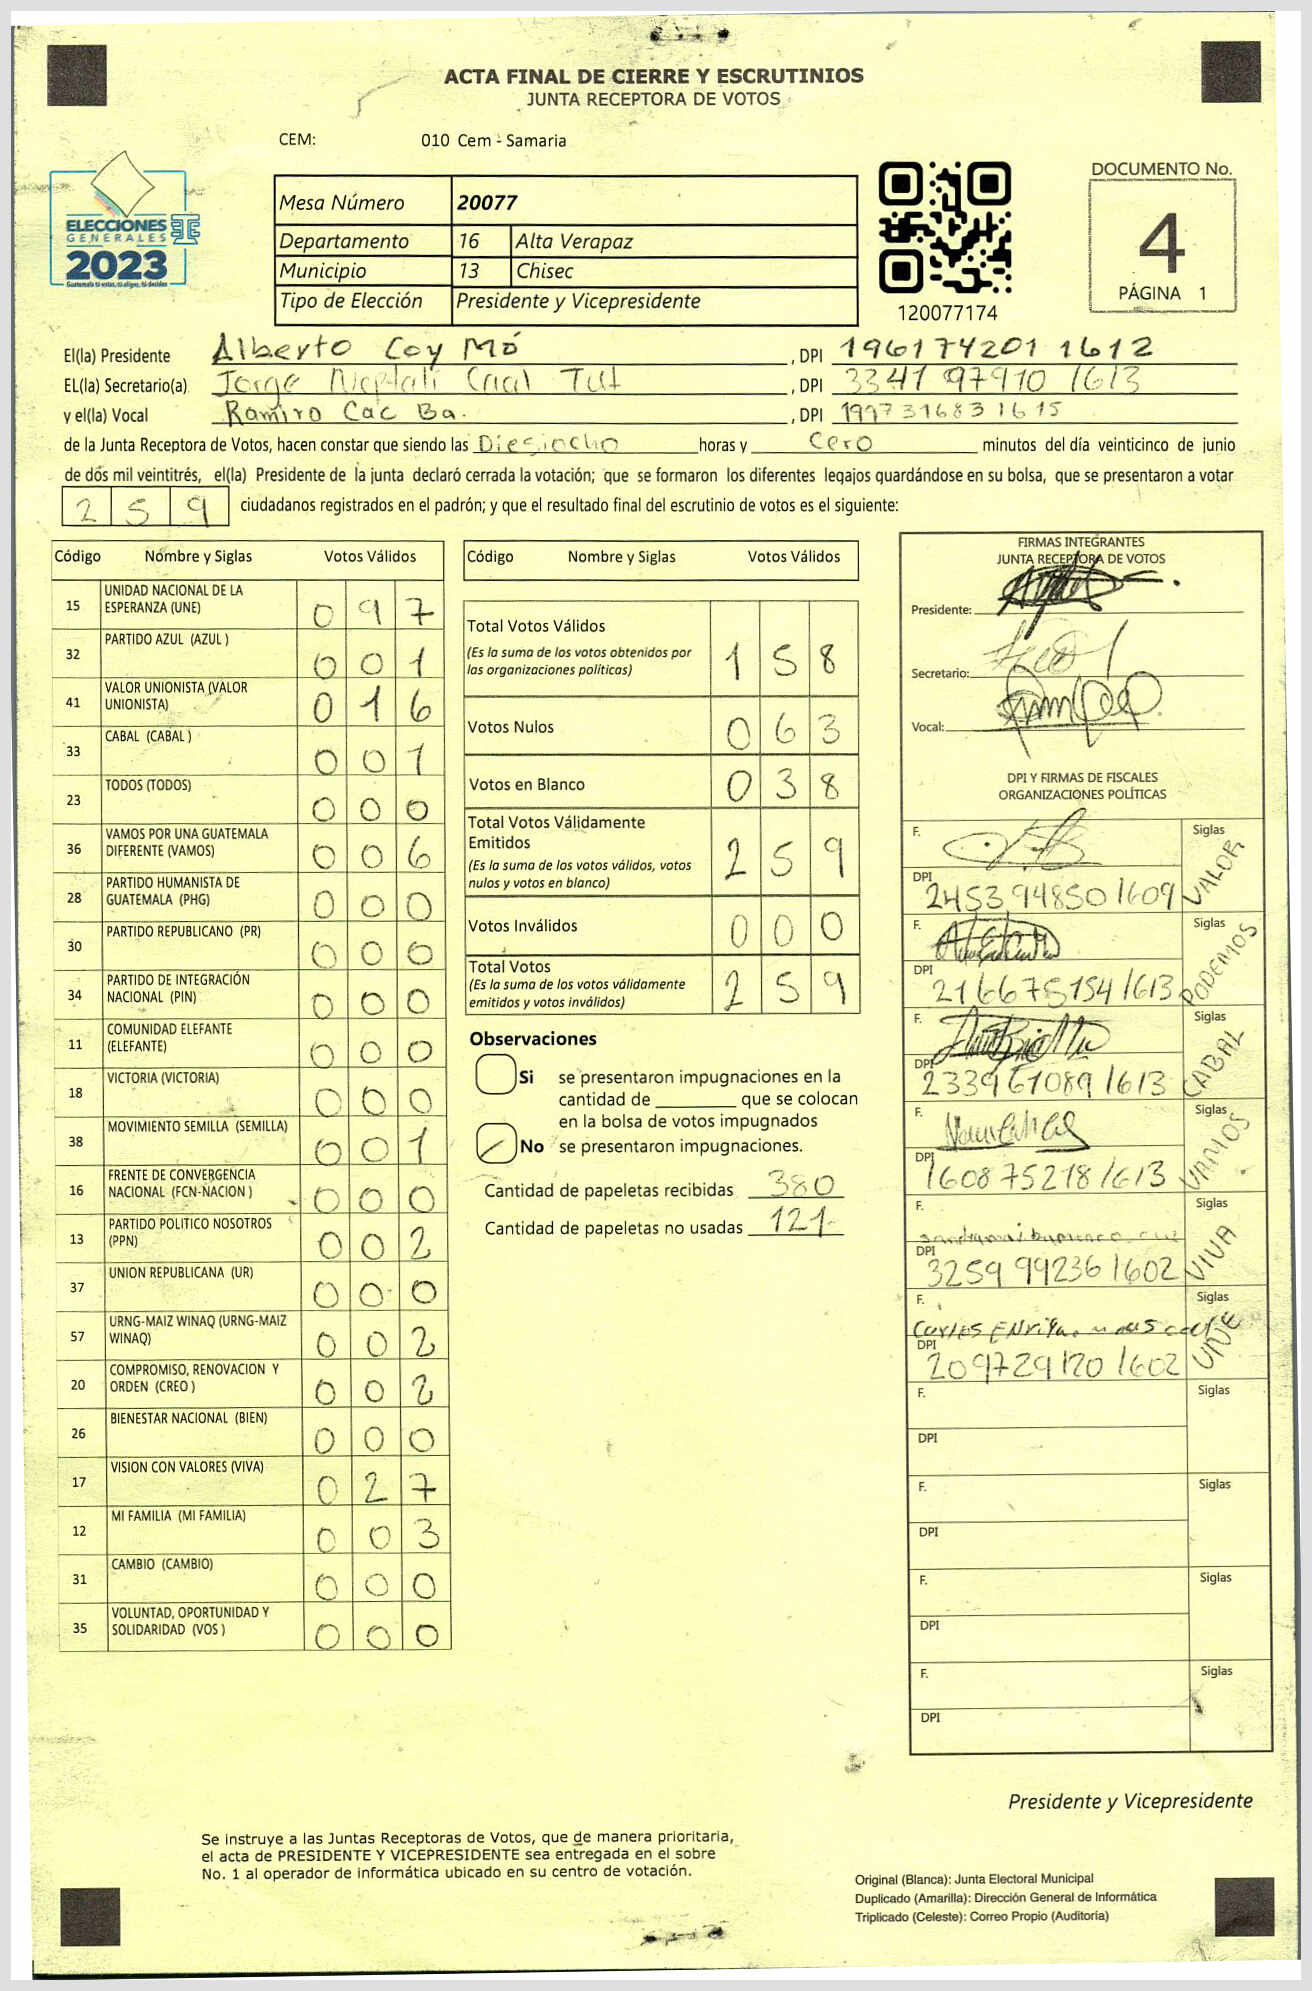 ACTA FINAL DE CIERRE Y ESCRUTINIOS
JUNTA RECEPTORA DE VOTOS
CEM: 010 Cem - Samaria
ELECCIONES
GENERALES
2023
Mesa Número 20077
Departamento 16 Alta Verapaz
Municipio 13 Chisec
Tipo de Elección Presidente y Vicepresidente
120077174
DOCUMENTO No.
4
PÁGINA 1
El(la) Presidente Alberto Coy Mó , DPI 196174201 1612
EL(la) Secretario(a) Jorge Neptali Caal Tut , DPI 3341 97910 1613
y el(la) Vocal Ramiro Cac Ba. , DPI 1997316831615
de la Junta Receptora de Votos, hacen constar que siendo las Diesiocho horas y Cero minutos del día veinticinco de junio
de dós mil veintitrés, el(la) Presidente de la junta declaró cerrada la votación; que se formaron los diferentes legajos guardándose en su bolsa, que se presentaron a votar
259 ciudadanos registrados en el padrón; y que el resultado final del escrutinio de votos es el siguiente:
Código Nombre y Siglas Votos Válidos
15 UNIDAD NACIONAL DE LA ESPERANZA (UNE) 097
32 PARTIDO AZUL (AZUL ) 001
41 VALOR UNIONISTA (VALOR UNIONISTA) 016
33 CABAL (CABAL ) 001
23 TODOS (TODOS) 000
36 VAMOS POR UNA GUATEMALA DIFERENTE (VAMOS) 006
28 PARTIDO HUMANISTA DE GUATEMALA (PHG) 000
30 PARTIDO REPUBLICANO (PR) 000
34 PARTIDO DE INTEGRACIÓN NACIONAL (PIN) 000
11 COMUNIDAD ELEFANTE (ELEFANTE) 000
18 VICTORIA (VICTORIA) 000
38 MOVIMIENTO SEMILLA (SEMILLA) 001
16 FRENTE DE CONVERGENCIA NACIONAL (FCN-NACION ) 000
13 PARTIDO POLITICO NOSOTROS (PPN) 002
37 UNION REPUBLICANA (UR) 000
57 URNG-MAIZ WINAQ (URNG-MAIZ WINAQ) 002
20 COMPROMISO, RENOVACION Y ORDEN (CREO ) 002
26 BIENESTAR NACIONAL (BIEN) 000
17 VISION CON VALORES (VIVA) 027
12 MI FAMILIA (MI FAMILIA) 003
31 CAMBIO (CAMBIO) 000
35 VOLUNTAD, OPORTUNIDAD Y SOLIDARIDAD (VOS ) 000
Código Nombre y Siglas Votos Válidos
Total Votos Válidos 158
(Es la suma de los votos obtenidos por
las organizaciones políticas)
Votos Nulos 063
Votos en Blanco 038
Total Votos Válidamente
Emitidos 259
(Es la suma de los votos válidos, votos
nulos y votos en blanco)
Votos Inválidos 000
Total Votos 259
(Es la suma de los votos válidamente
emitidos y votos inválidos)
Observaciones
Si se presentaron impugnaciones en la
cantidad de ________ que se colocan
en la bolsa de votos impugnados
No se presentaron impugnaciones.
Cantidad de papeletas recibidas 380
Cantidad de papeletas no usadas 121
FIRMAS INTEGRANTES
JUNTA RECEPTORA DE VOTOS
Presidente:
Secretario:
Vocal:
DPI Y FIRMAS DE FISCALES
ORGANIZACIONES POLÍTICAS
F. Siglas VALOR
DPI 2453 94850 1609
F. Siglas PODEMOS
DPI 216675154 1613
F. Siglas CABAL
DPI 233961089 1613
F. Siglas VAMOS
DPI 160875218 1613
F. Siglas VIVA
DPI 3259 99236 1602
F. Siglas UNE
DPI 209729120 1602
F. Siglas
DPI
F. Siglas
DPI
F. Siglas
DPI
F. Siglas
DPI
Presidente y Vicepresidente
Se instruye a las Juntas Receptoras de Votos, que de manera prioritaria,
el acta de PRESIDENTE Y VICEPRESIDENTE sea entregada en el sobre
No. 1 al operador de informática ubicado en su centro de votación.
Original (Blanca): Junta Electoral Municipal
Duplicado (Amarilla): Dirección General de Informática
Triplicado (Celeste): Correo Propio (Auditoría)